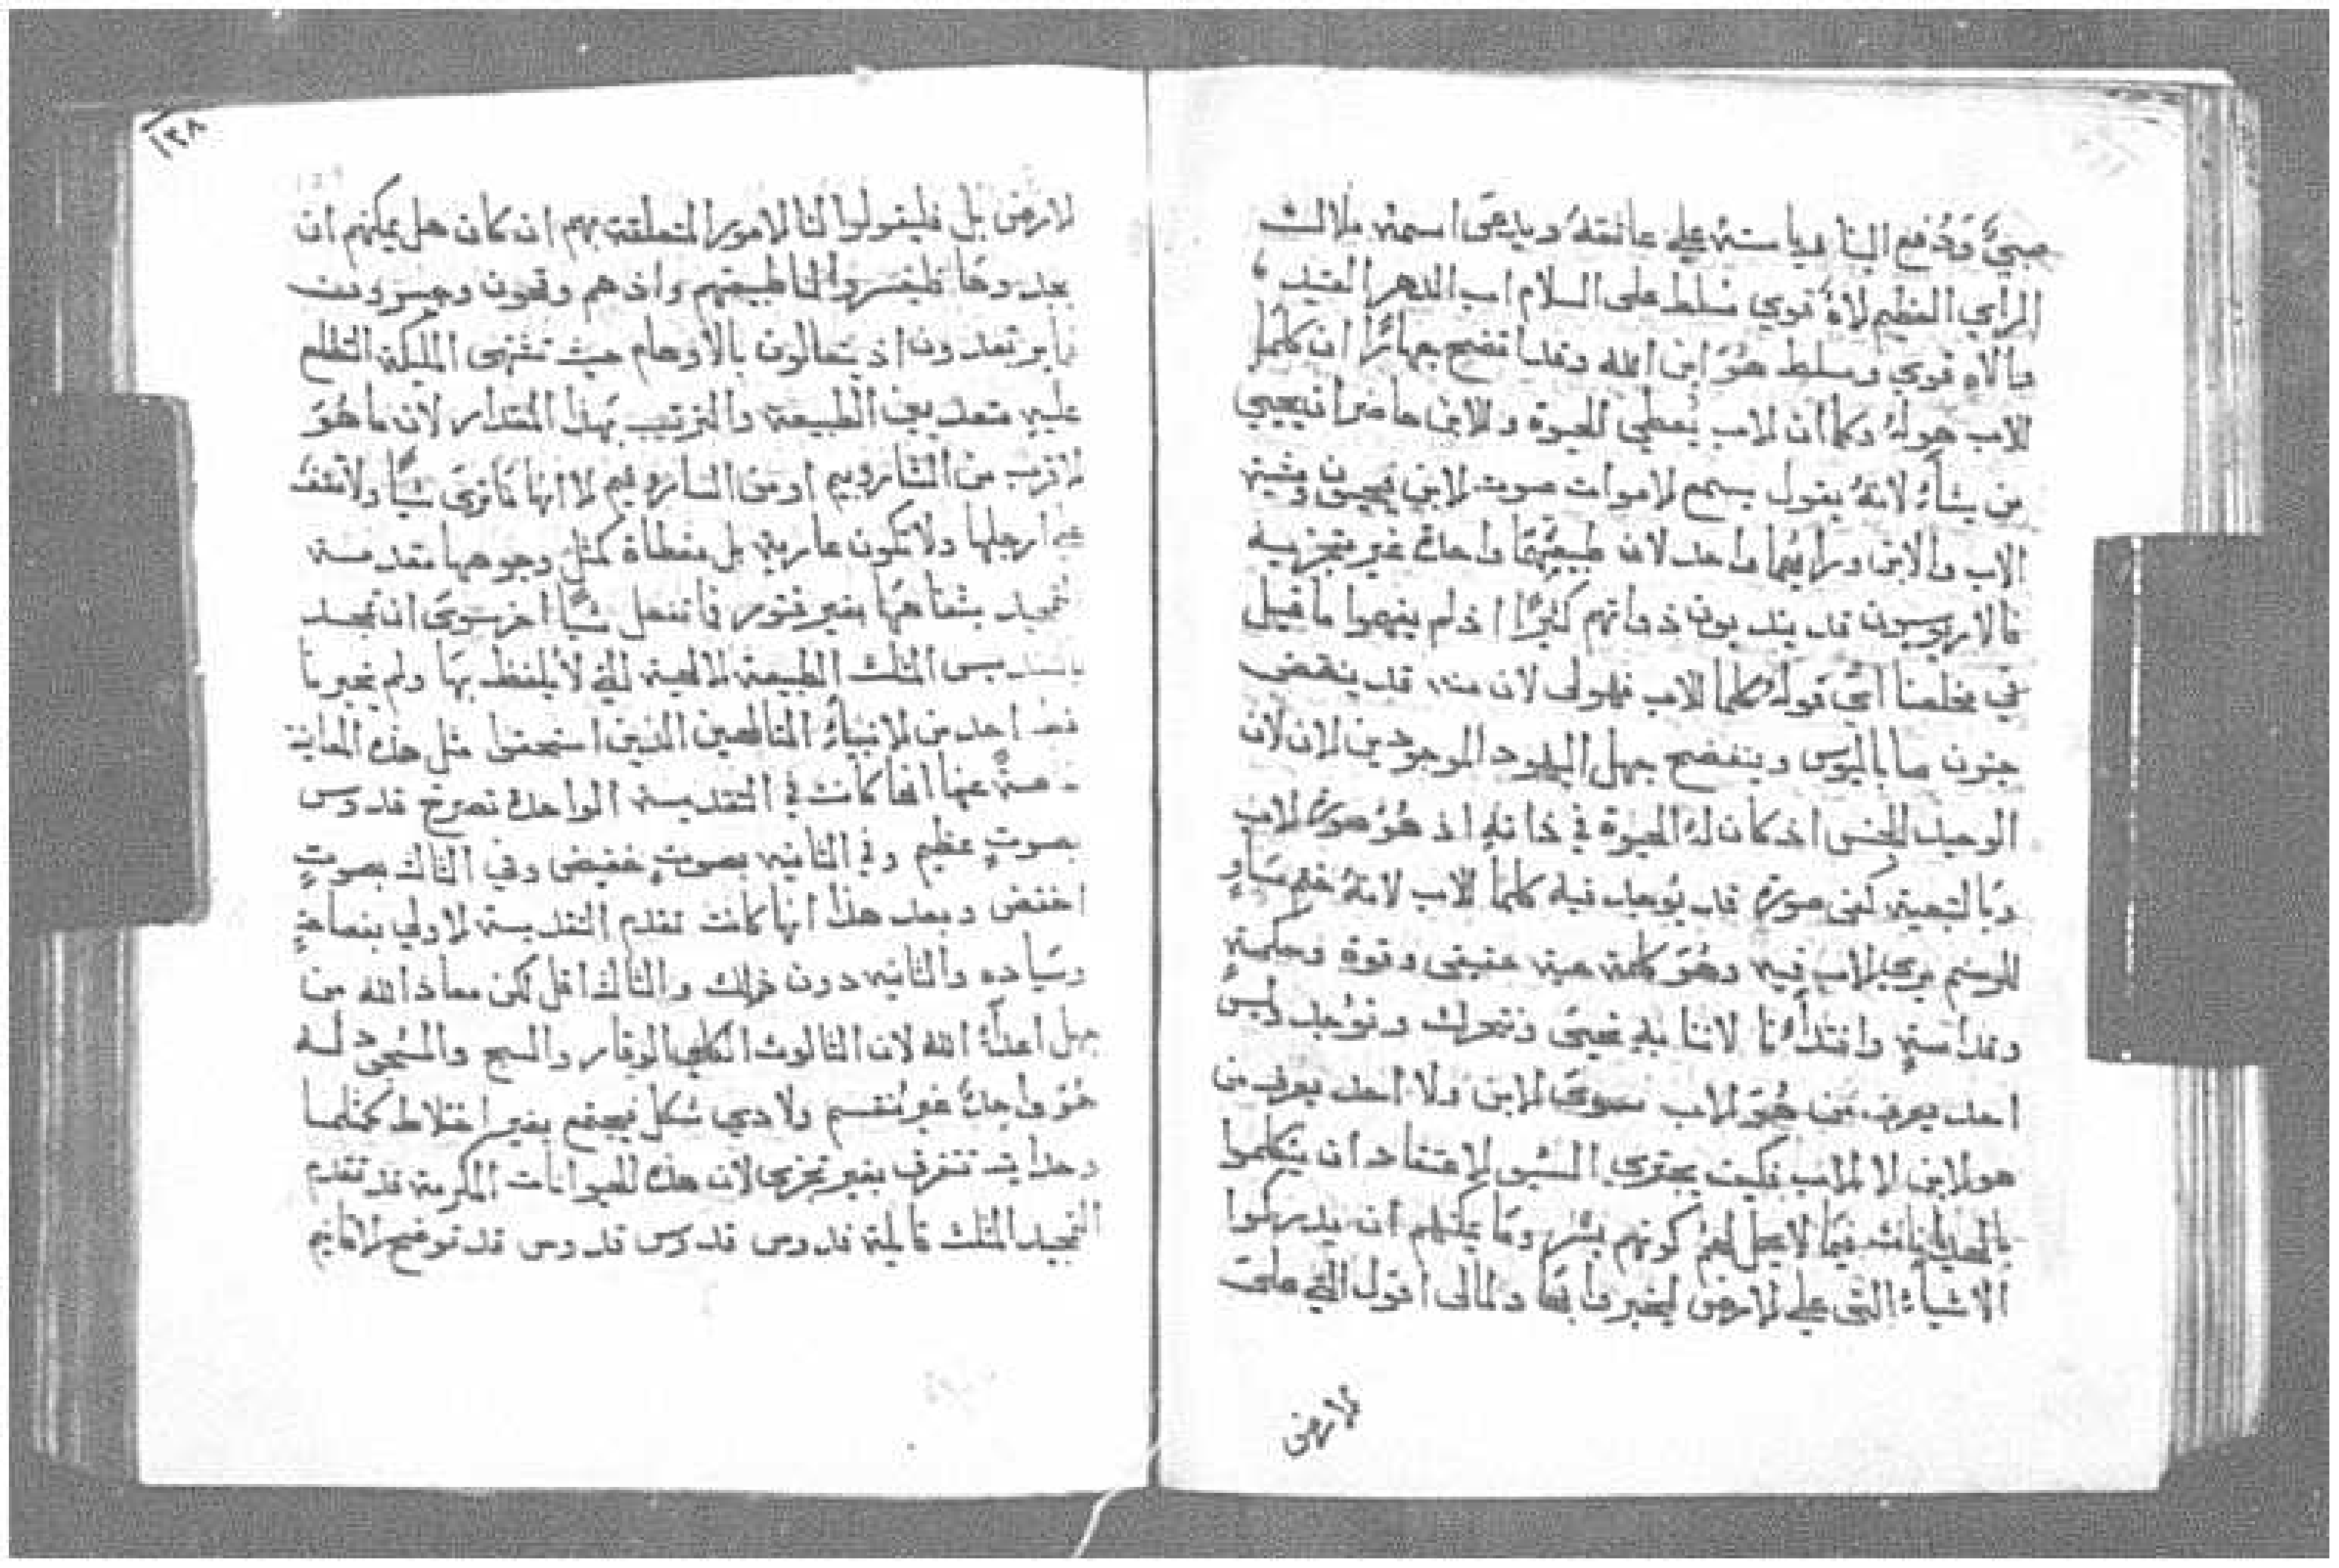 صبيٌّ وَدُفع الينا رياسته علي عاتقهُ ويدعَى اسمه ملاك
الراي العظيم لاهٌ قوي مسلط على السلام اب الدهر العتيد
فالاه قوي ومسلط هُوَ ابن الله وقد اتضح جهارًا ان كلما
للاب هولهُ وكما ان لاب يُعطي الحيوة والابن حاضرا يحيي
من يشاءُ لانهُ يقول يسمع لاموات صوت لابن فيحيون ومشية
الاب والابن ورايُهما واحد لان طبيعتهما واحدة غير متجزيه
فالاريوسيون قد يندبون ذواتهم كثيرًا اذ لم يفهموا ما قيل
في مخلصنا اعني قولهُ كلما للاب فهولي لان منه قد ينقضى
جنون سابليوس ويتفضح جهل اليهود الموجودين لان لان
الوحيد الجنس اذ كان لهُ الحيوة في ذاته اذ هُوَ صورة لاب
وبالتبعية كفى صورة قد يُوجد فيه كلما للاب لانهُ ختم مساوٍ
للرسم يرى لاب فيه وهُوَ كلمة حية حقيقى وقوة وحكمة
وقداسةٍ وافتداءُنا لاننا بهِ نحيى ونتحرك ونُوجد وليس
احد يعرف من هُوَ لاب سوى لابن ولا احد يعرف من
هو لابن الا لاب فكيف يجترى السُيو لاعتقاد ان يتكلموا
بالهديانات فيما لا يحل لهم كونهم بشر وما يمكنهم ان يدركوا
الاشياءَ التي علي لارض ليخبروا بها ومالى اقول التي على
لارض
١٣٨
لارض بل فليقولوا لنا لامور المتعلقة بهم ان كان هل يمكنهم ان
يجدوها فليفسروا لنا طبيعتهم واذ هم وقحون وجسورون
يرتعدون اذ يتعالون بالاوهام حيث تشتهى المليكة التطلع
عليه متعديين الطبيعة والترتيب بهذا المقدار لان ما هُوَ
لاقرب من الشاروبيم او من الساروفيم لا انها ما ترى شيًا ولا تقف
على ارجلها ولا تكون عارية بل مغطاة كمثل وجوهها مقدسة
تمجيد بشفاهها بغير فتور فما تفعل شيًا اخر سوى ان تمجد
بتقديس المثلث الطبيعة لالهية التي لا يلفظ بها ولم يخبرنا
قط احد من لانبياء المتالهين الذين استحقوا مثل هذه المعاينة
عنها انها كانت في التقديسة الواحدة تصرخ قدوس
بصوتٍ عظيم وفي الثانيه بصوتٍ خفيض وفي الثالث بصوتٍ
اخفض وبعد هذا انها كانت تقدم التقديسة لاولي بفصاحةٍ
وسياده والثانيه دون ذلك والثالث اقل لكن معاذ الله من
جهل اعداءَ الله لان الثالوث الكلي الوقار والسبح والسُجود له
هُوَ واحدٌ غير منقسم ولا ذي شكل فيجتمع بغير اختلاط كمثلما
وحدايته تتفرق بغير تجزى لان هذه الحيوانات المكرمة قد تقدم
التمجيد المثلث قايلة قدوس قدوس قدوس قد توضح لاقانيم